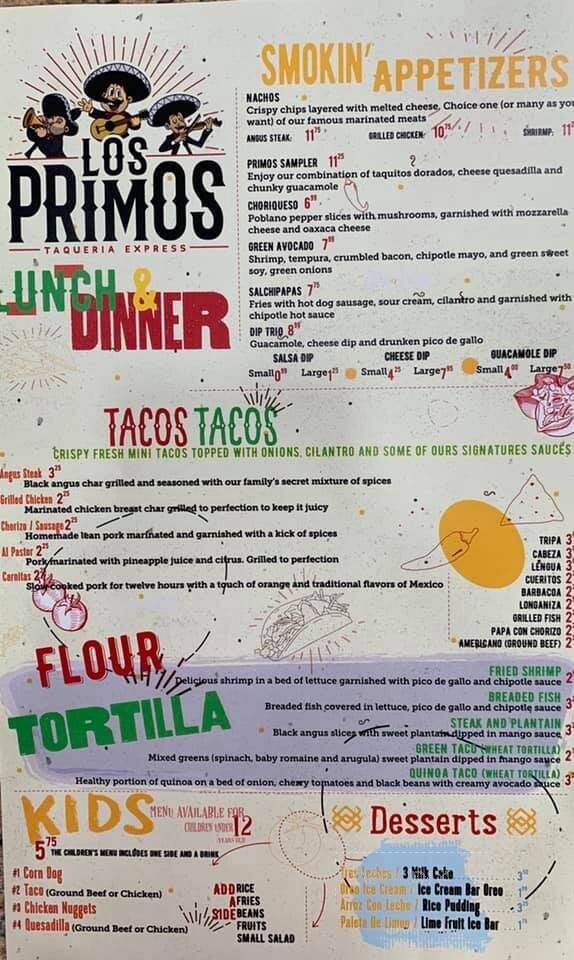 LOS
PRIMOS
TAQUERIA EXPRESS
LUNCH &
DINNER
SMOKIN' APPETIZERS
NACHOS
Crispy chips layered with melted cheese, Choice one (or many as you
want) of our famous marinated meats
ANGUS STEAK: 11⁷⁵ GRILLED CHICKEN: 10⁷⁵ SHRIRMP: 11
PRIMOS SAMPLER 11²⁵
Enjoy our combination of taquitos dorados, cheese quesadilla and
chunky guacamole
CHORIQUESO 6⁹⁹
Poblano pepper slices with mushrooms, garnished with mozzarella
cheese and oaxaca cheese
GREEN AVOCADO 7⁹⁹
Shrimp, tempura, crumbled bacon, chipotle mayo, and green sweet
soy, green onions
SALCHIPAPAS 7⁷⁵
Fries with hot dog sausage, sour cream, cilantro and garnished with
chipotle hot sauce
DIP TRIO 8⁹⁹
Guacamole, cheese dip and drunken pico de gallo
SALSA DIP CHEESE DIP GUACAMOLE DIP
Small 0⁹⁹ Large 1²⁵ Small 4²⁵ Large 7⁹⁵ Small 4⁰⁰ Large 7⁵⁰
TACOS TACOS
CRISPY FRESH MINI TACOS TOPPED WITH ONIONS, CILANTRO AND SOME OF OURS SIGNATURES SAUCES
Angus Steak 3²⁵
Black angus char grilled and seasoned with our family's secret mixture of spices
Grilled Chicken 2²⁵
Marinated chicken breast char grilled to perfection to keep it juicy
Chorizo / Sausage 2²⁵
Homemade lean pork marinated and garnished with a kick of spices
Al Pastor 2²⁵
Pork marinated with pineapple juice and citrus. Grilled to perfection
Carnitas 2
Slow cooked pork for twelve hours with a touch of orange and traditional flavors of Mexico
TRIPA 3
CABEZA 3
LENGUA 3
CUERITOS 2
BARBACOA 2
LONGANIZA 2
GRILLED FISH 2
PAPA CON CHORIZO 2
AMERICANO (GROUND BEEF) 2
FLOUR
TORTILLA
FRIED SHRIMP 2
Delicious shrimp in a bed of lettuce garnished with pico de gallo and chipotle sauce
BREADED FISH 3
Breaded fish covered in lettuce, pico de gallo and chipotle sauce
STEAK AND PLANTAIN 3
Black angus slices with sweet plantain dipped in mango sauce
GREEN TACO (WHEAT TORTILLA) 2
Mixed greens (spinach, baby romaine and arugula) sweet plantain dipped in mango sauce
QUINOA TACO (WHEAT TORTILLA) 3
Healthy portion of quinoa on a bed of onion, cherry tomatoes and black beans with creamy avocado sauce
KIDS MENU AVAILABLE FOR
CHILDREN UNDER 12
YEARS OLD
5⁷⁵ THE CHILDREN'S MENU INCLUDES ONE SIDE AND A DRINK
#1 Corn Dog
#2 Taco (Ground Beef or Chicken)
#3 Chicken Nuggets
#4 Quesadilla (Ground Beef or Chicken)
ADD A SIDE
RICE
FRIES
BEANS
FRUITS
SMALL SALAD
Desserts
Tres Leches / 3 Milk Cake 3
Oreo Ice Cream / Ice Cream Bar Oreo 1
Arroz Con Leche / Rice Pudding 3
Paleta De Limon / Lime Fruit Ice Bar 1